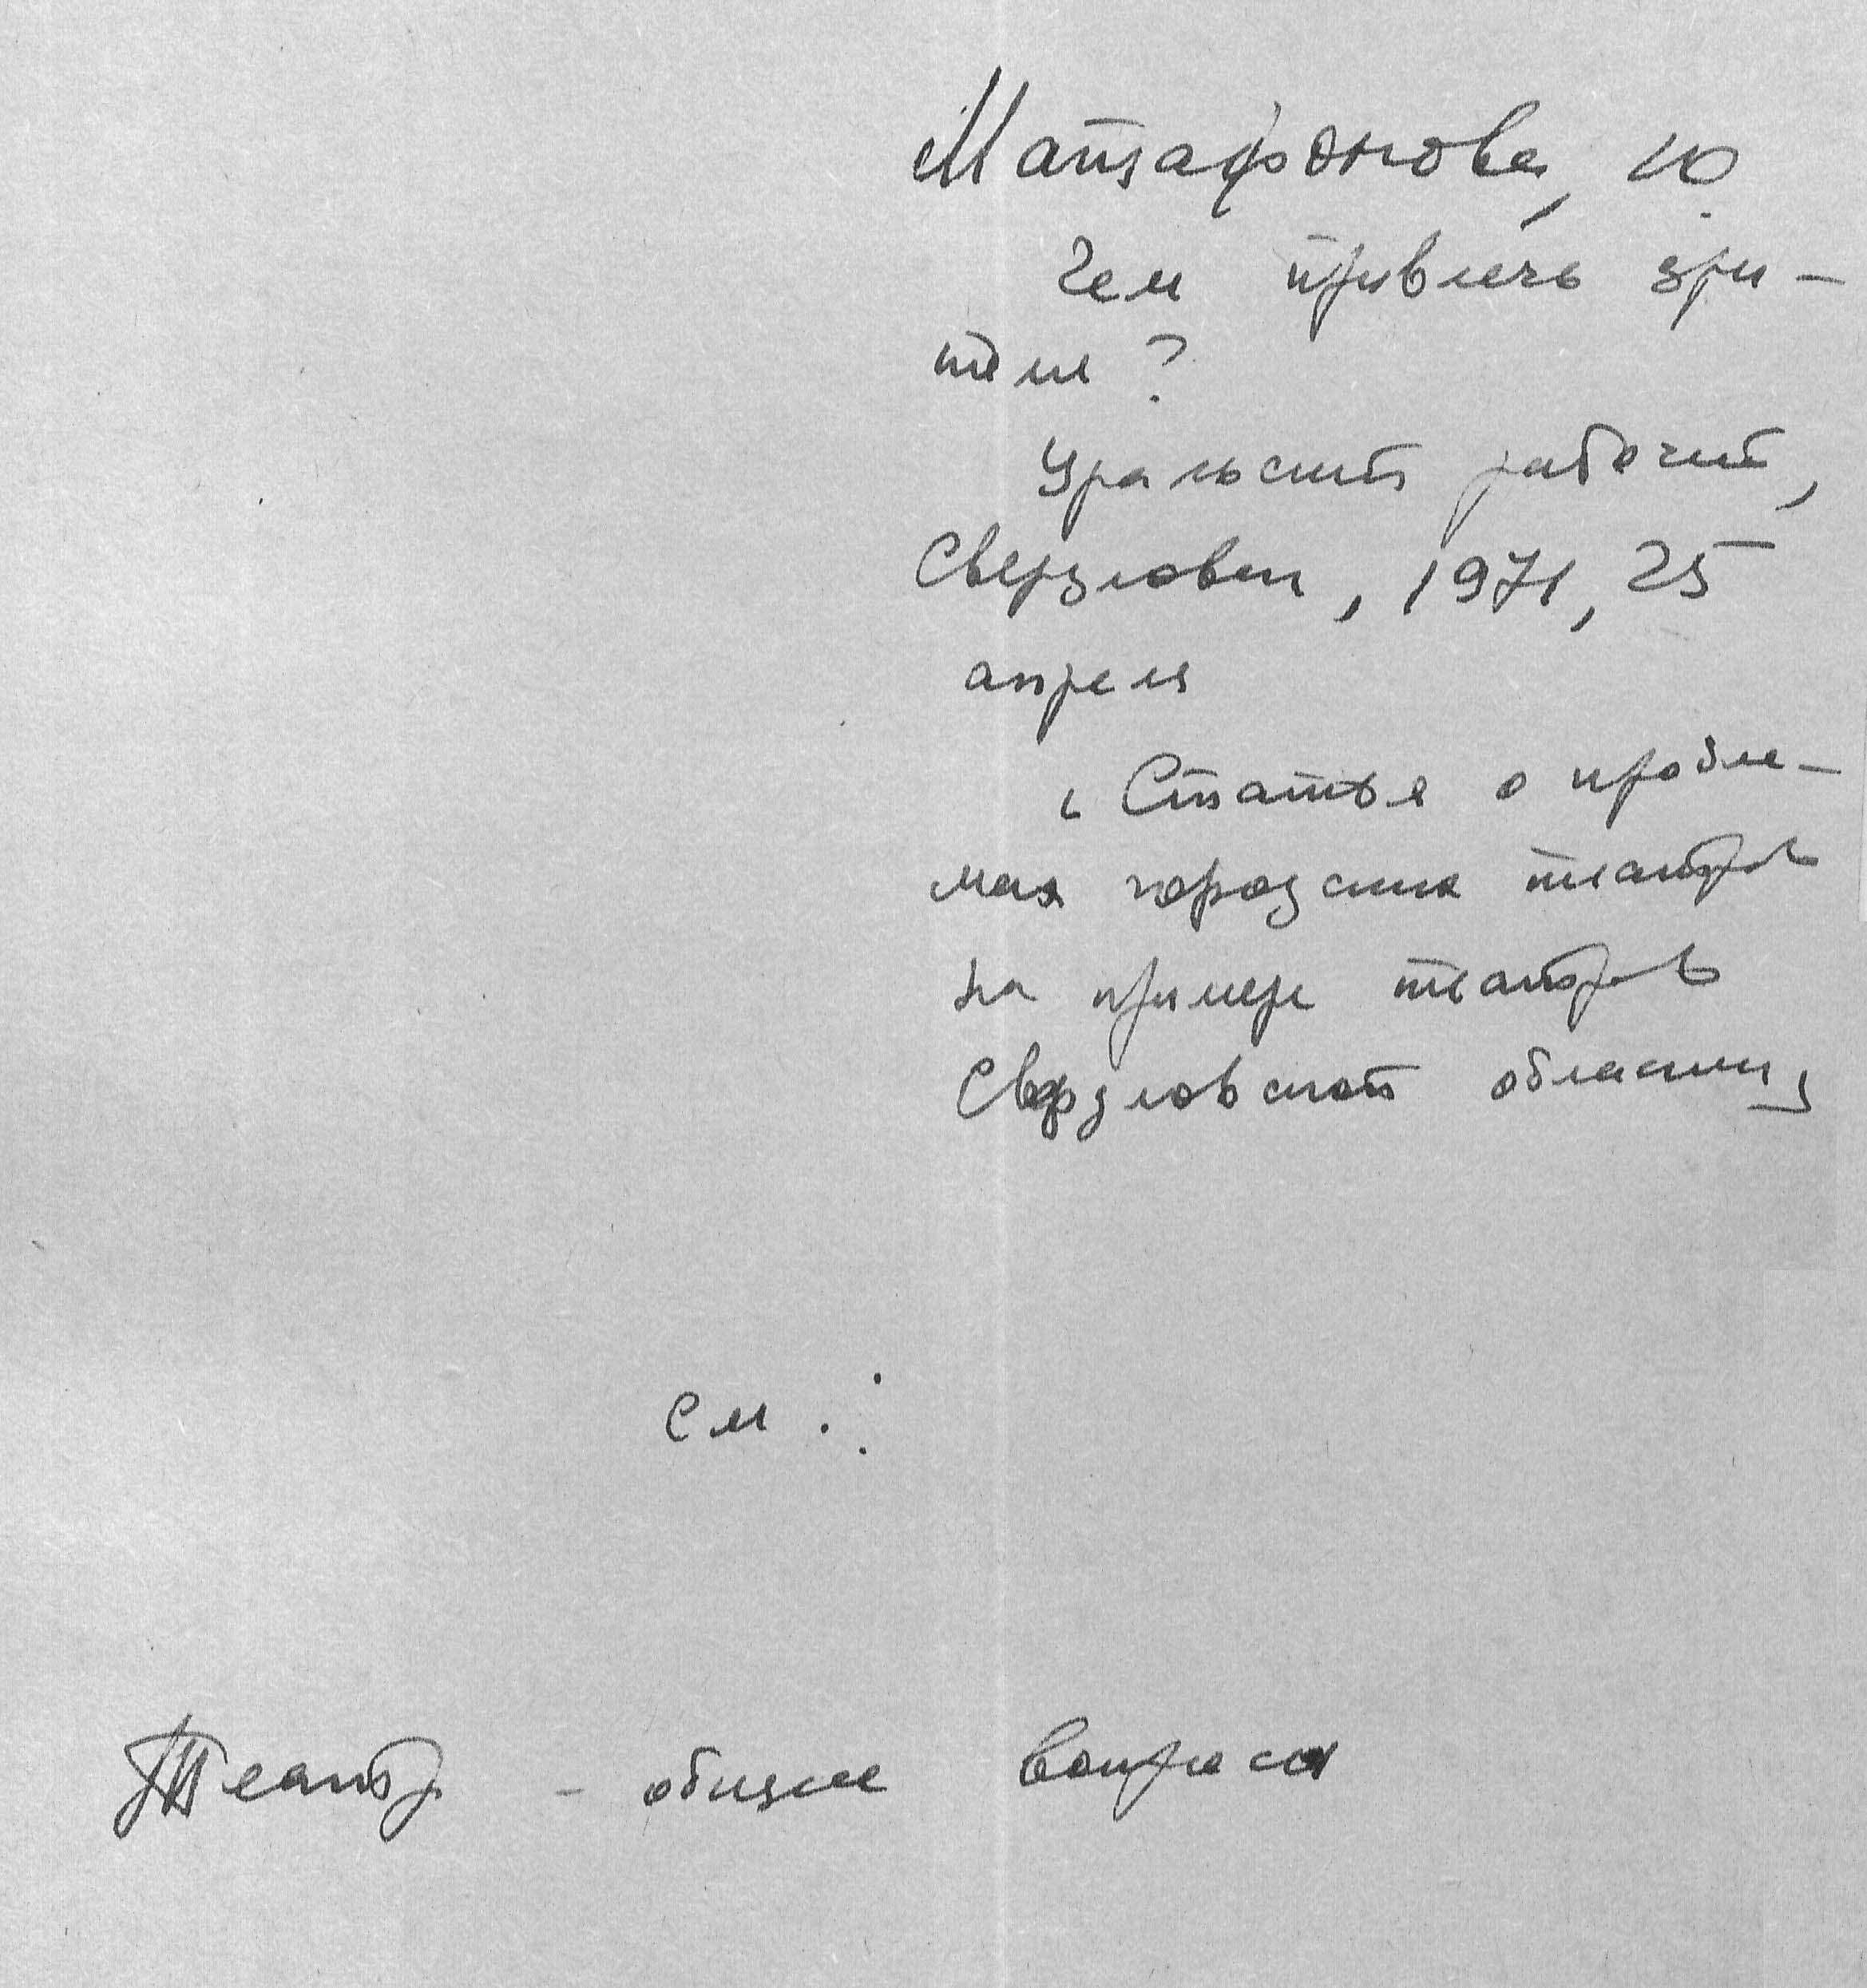 Матафонова, Ю.
Чем привлечь зри-
теля?
Уральский рабочий,
Свердловск, 1971, 25
апреля
[Статья о пробле-
мах городских театров
на примере театров
Свердловской области]
См.:
Театр - общие вопросы